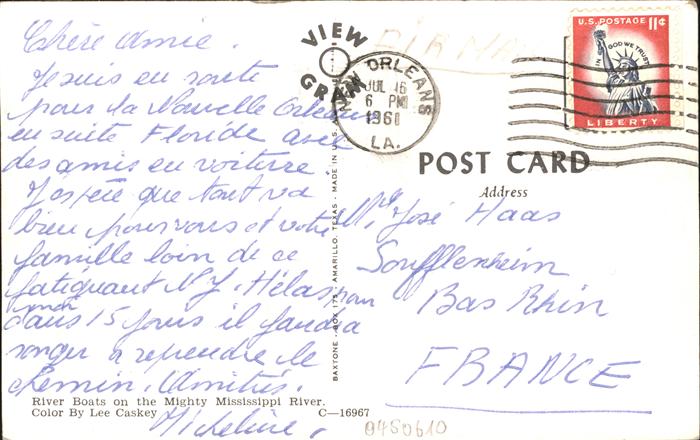 Chère Amie.
Je suis en route
pour la Nouvelle Orléans
ensuite Floride avec
des amis en voiture.
J'espère que tout va
bien pour vous et votre
famille loin de ce
fatiguant N.Y. Hélas pour
moi
dans 15 jours il faudra
songer à reprendre le
chemin. Amitiés.
Micheline.
River Boats on the Mighty Mississippi River.
Color By Lee Caskey
C—16967
VIEW
GRAM
BAXTONE, BOX 175, AMARILLO, TEXAS - MADE IN U.S.
AIR MAIL
NEW ORLEANS
JUL 16
6 PM
1961
LA.
U.S. POSTAGE 11¢
IN GOD WE TRUST
LIBERTY
POST CARD
Address
José Haas
Soufflenheim
Bas Rhin
FRANCE
0480610